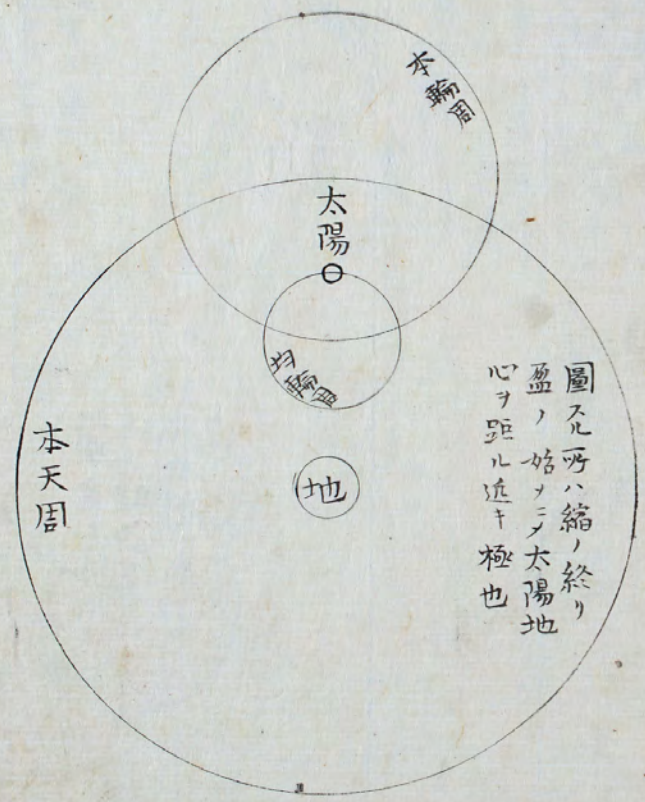 本輪周
太陽
均輪周
地
本天周
圖スル所ハ縮ノ終リ
盈ノ始メニメ太陽地
心ヲ距ル近キ極也